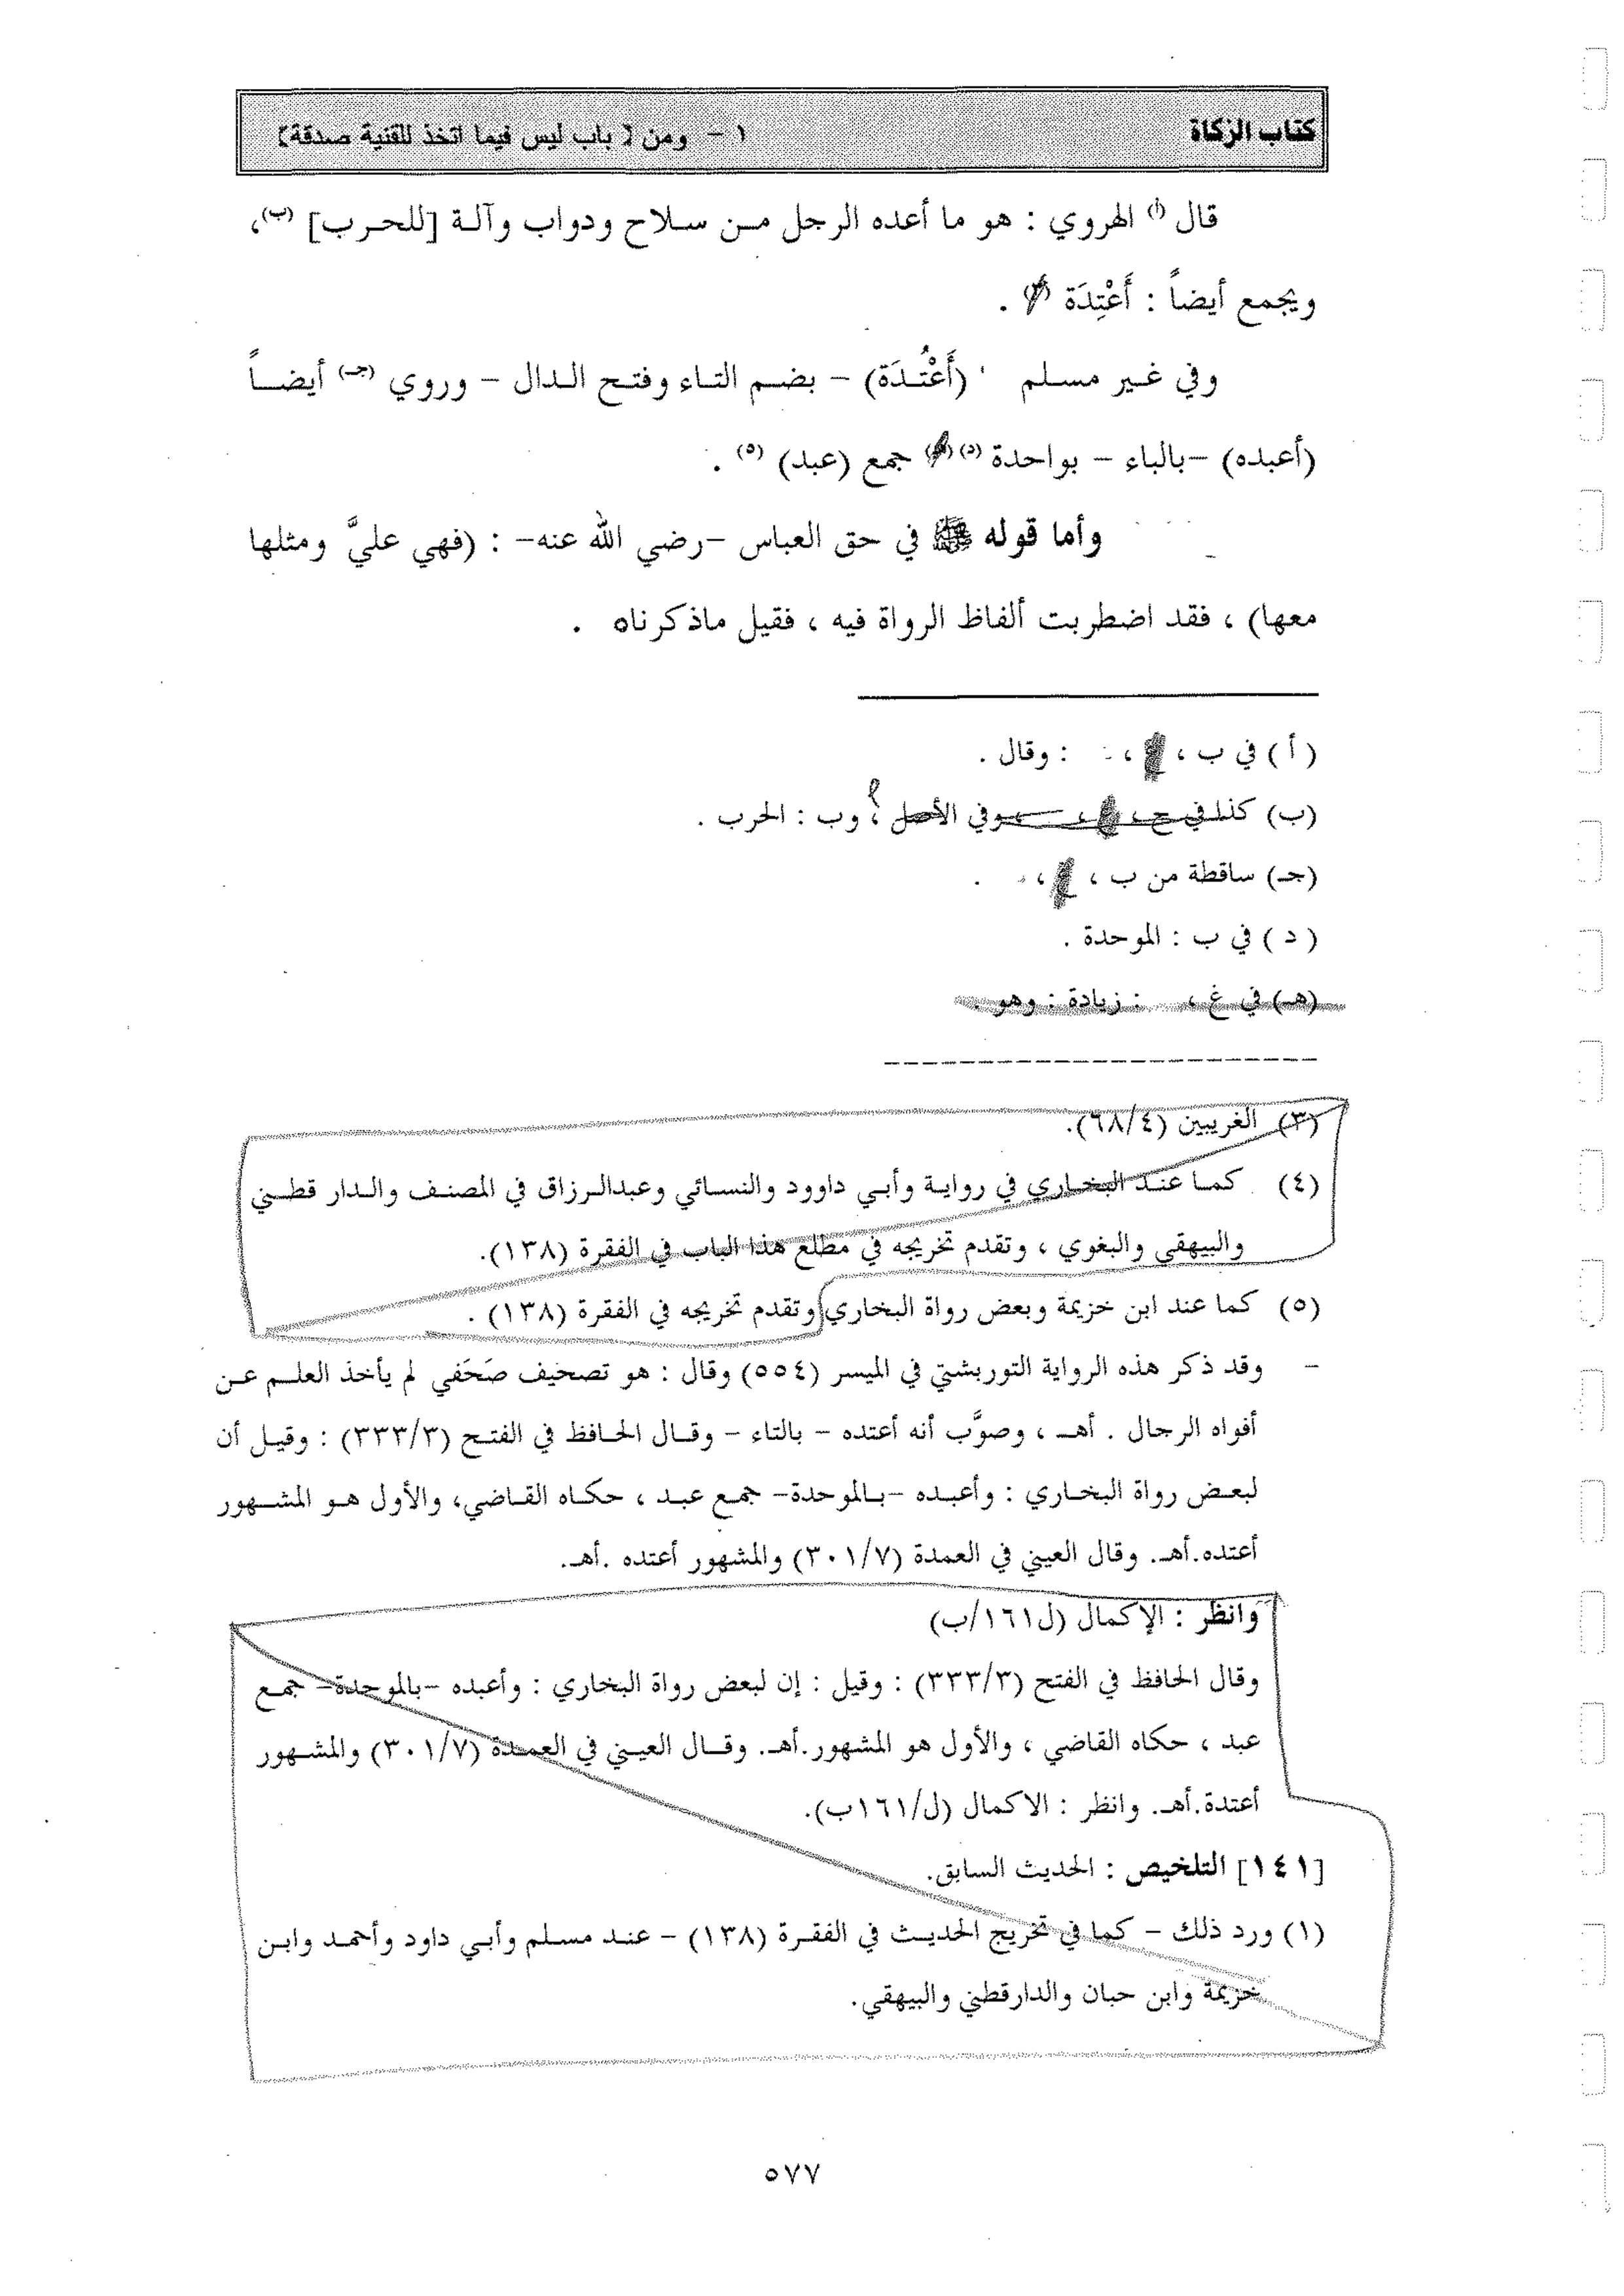 كتاب الزكاة
١ - ومن [ باب ليس فيما اتخذ للقنية صدقة]
قال (أ) الهروي : هو ما أعده الرجل من سلاح ودواب وآلة [للحرب] (ب)،
ويجمع أيضاً : أَعْتِدَة (٣) .
وفي غير مسلم (أَعْتُدَة) - بضم التاء وفتح الدال - وروي (جـ) أيضاً
(أعبده) -بالباء - بواحدة (د) جمع (عبد) (٥) .
وأما قوله ﷺ في حق العباس -رضي الله عنه- : (فهي عليَّ ومثلها
معها) ، فقد اضطربت ألفاظ الرواة فيه ، فقيل ماذكرناه .
(أ) في ب ، ، : وقال .
(ب) كذا في ح ، ، وفي الأصل ، وب : الحرب .
(جـ) ساقطة من ب ، ، .
(د) في ب : الموحدة .
(هـ) في غ ، : زيادة : وهو .
(٣) الغريبين (٦٨/٤).
(٤) كما عند البخاري في رواية وأبي داوود والنسائي وعبدالرزاق في المصنف والدار قطني
والبيهقي والبغوي ، وتقدم تخريجه في مطلع هذا الباب في الفقرة (١٣٨).
(٥) كما عند ابن خزيمة وبعض رواة البخاري وتقدم تخريجه في الفقرة (١٣٨) .
- وقد ذكر هذه الرواية التوربشتي في الميسر (٥٥٤) وقال : هو تصحيف صَحَفي لم يأخذ العلم عن
أفواه الرجال . أهـ ، وصوَّب أنه أعتده - بالتاء - وقال الحافظ في الفتح (٣٣٣/٣) : وقيل أن
لبعض رواة البخاري : وأعبده -بالموحدة- جمع عبد ، حكاه القاضي، والأول هو المشهور
أعتده.أهـ. وقال العيني في العمدة (٣٠١/٧) والمشهور أعتده .أهـ.
وانظر : الإكمال (ل١٦١/ب)
وقال الحافظ في الفتح (٣٣٣/٣) : وقيل : إن لبعض رواة البخاري : وأعبده -بالموحدة- جمع
عبد ، حكاه القاضي ، والأول هو المشهور.أهـ. وقال العيني في العمدة (٣٠١/٧) والمشهور
أعتدة.أهـ. وانظر : الاكمال (ل/١٦١ب).
[١٤١] التلخيص : الحديث السابق.
(١) ورد ذلك - كما في تخريج الحديث في الفقرة (١٣٨) - عند مسلم وأبي داود وأحمد وابن
خزيمة وابن حبان والدارقطني والبيهقي.
٥٧٧